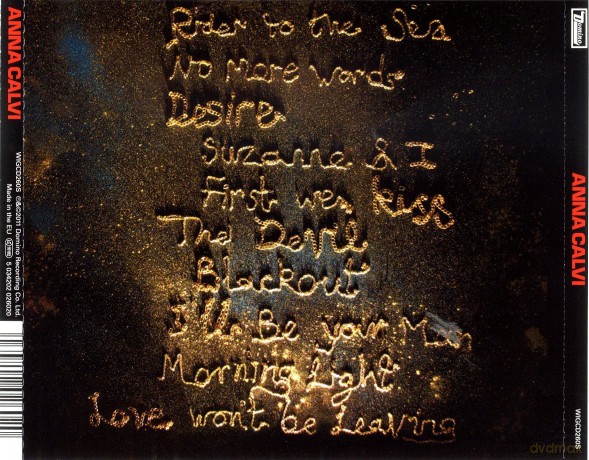 Rider to the Sea
No More Words
Desire
Suzanne & I
First we kiss
The Devil
Blackout
I'll Be your Man
Morning Light
Love won't be Leaving
ANNA CALVI
WIGCD260S ℗&©2011 Domino Recording Co. Ltd.
Made in the EU
5 034202 026020
Domino
ANNA CALVI
WIGCD260S
dvdmax